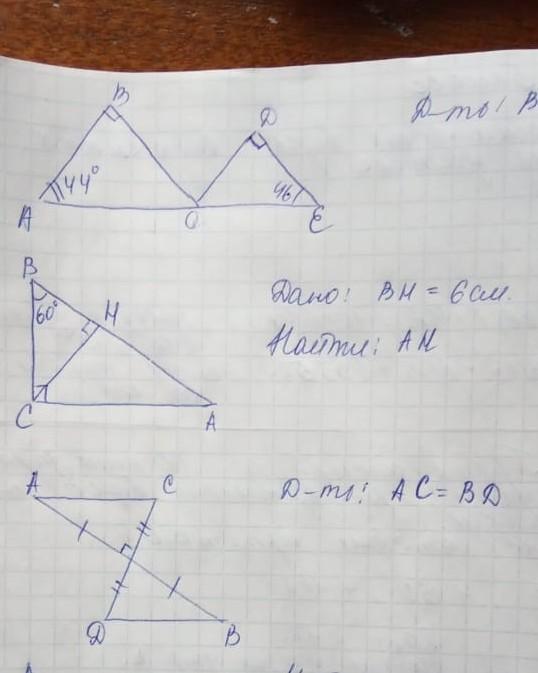 B
Д
Д-ть: В
44°
46
A
O
E
B
60°
H
Дано: BH = 6 см.
Найти: AH
C
A
A
C
Д-ть: AC = BD
Д
B